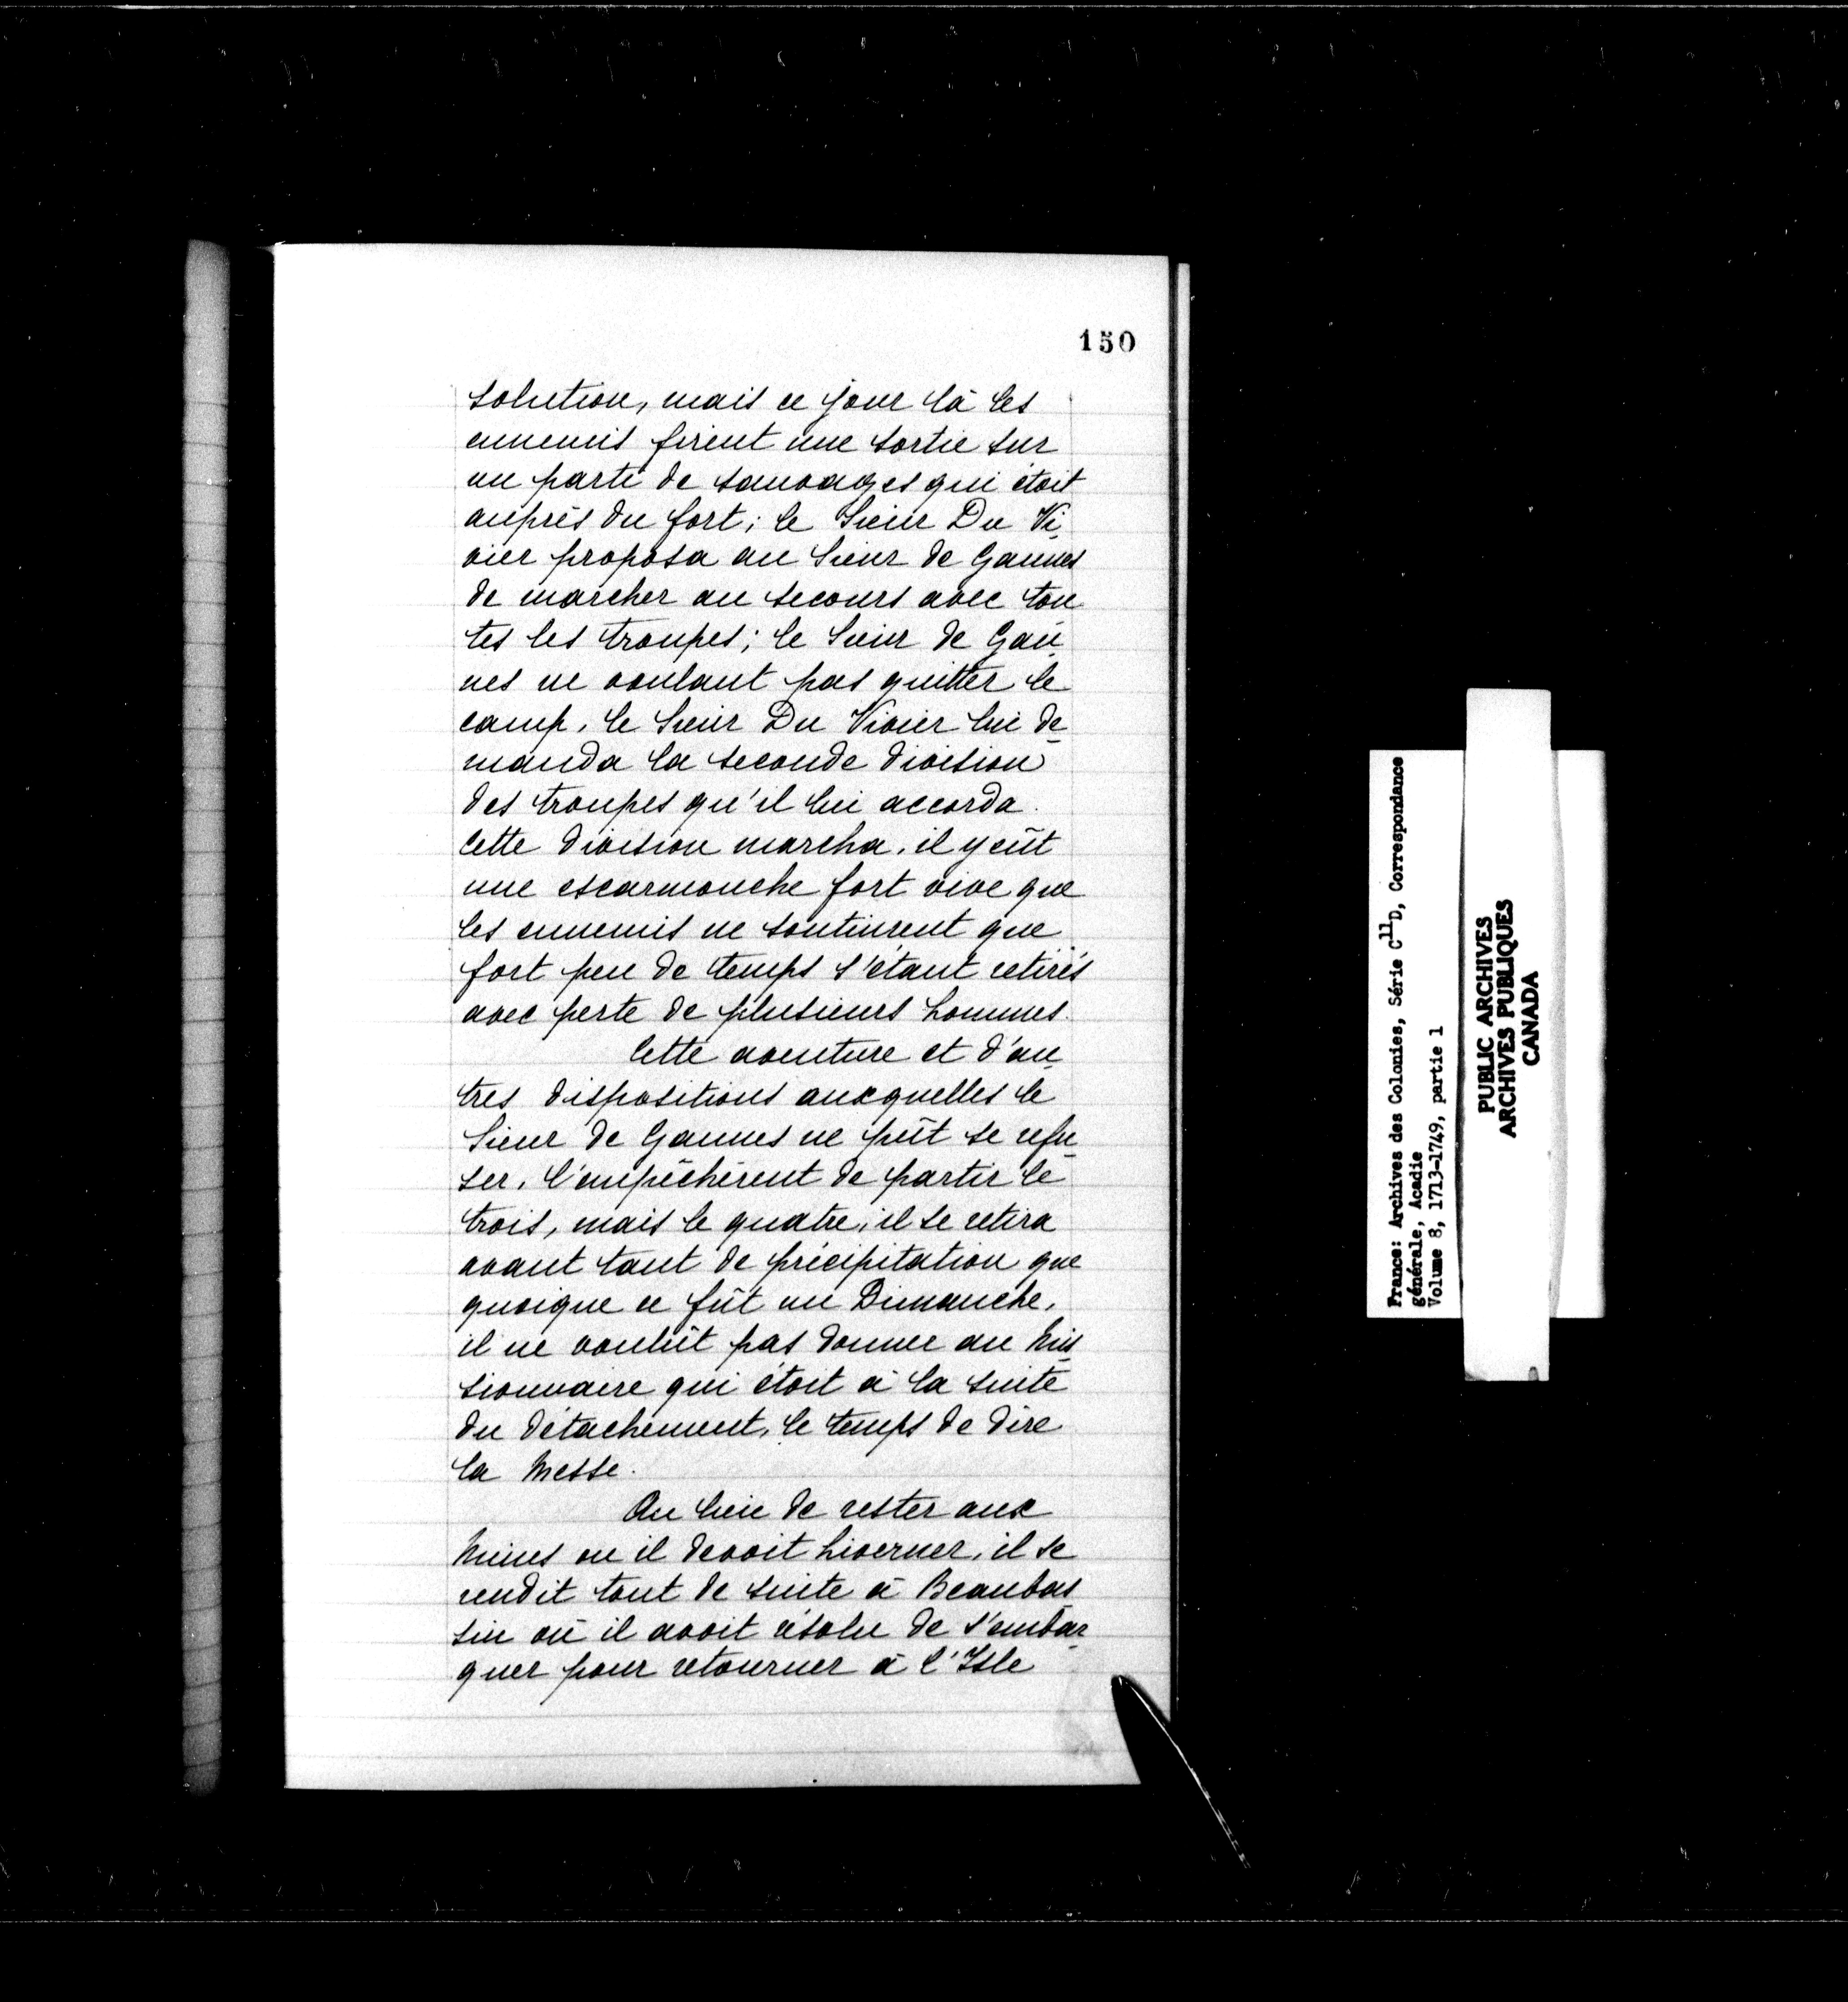 150
solution, mais ce jour là les
ennemis firent une sortie sur
un parti de sauvages qui étoit
auprès du fort; le Sieur Du Vi-
vier proposa au Sieur de Gannes
de marcher au secours avec tou
tes les troupes; le Sieur de Gan-
nes ne voulant pas quitter le
camp, le Sieur Du Vivier lui de-
manda la seconde division
des troupes qu'il lui accorda.
Cette division marcha, il y eût
une escarmouche fort vive que
les ennemis ne soutinrent que
fort peu de temps s'étant retirés
avec perte de plusieurs hommes.
Cette aventure et d'au-
tres dispositions auxquelles le
Sieur de Gannes ne pût se refu-
ser, l'empêchèrent de partir le
trois, mais le quatre, il se retira
avant tant de précipitation que
quoique ce fût un Dimanche,
il ne voulût pas donner au Mis-
sionnaire qui étoit à la suite
du détachement, le temps de dire
la Messe.
Au lieu de rester aux
Mines ou il devoit hiverner, il se
rendit tout de suite à Beaubas
sin où il avoit résolu de s'embar-
quer pour retourner à l'Isle
France: Archives des Colonies, Série C11D, Correspondance
générale, Acadie
Volume 8, 1713-1749, partie 1
PUBLIC ARCHIVES
ARCHIVES PUBLIQUES
CANADA